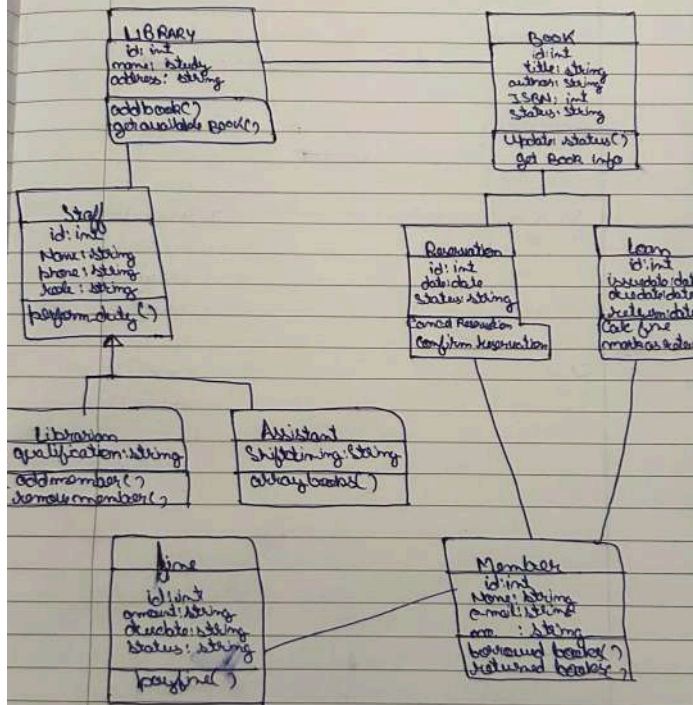 LIBRARY
id: int
name: study
address: string
addbook()
getavailable Book()
Book
id:int
title: string
author: string
ISBN: int
status: string
Update status()
get Book info
Staff
id: int
Name: string
phone: string
role: string
perform duty()
Reservation
id: int
date:date
status: string
Cancel Reservation
Confirm reservation
Loan
id: int
issuedate:date
duedate:date
return:date
Calc fine
mark as
Librarian
qualification: string
addmember()
removemember()
Assistant
Shifttiming: String
array books()
fine
id: int
amount: string
duedate: string
status: string
payfine()
Member
id:int
Name: string
e-mail: string
no : string
borrowed books()
returned books()